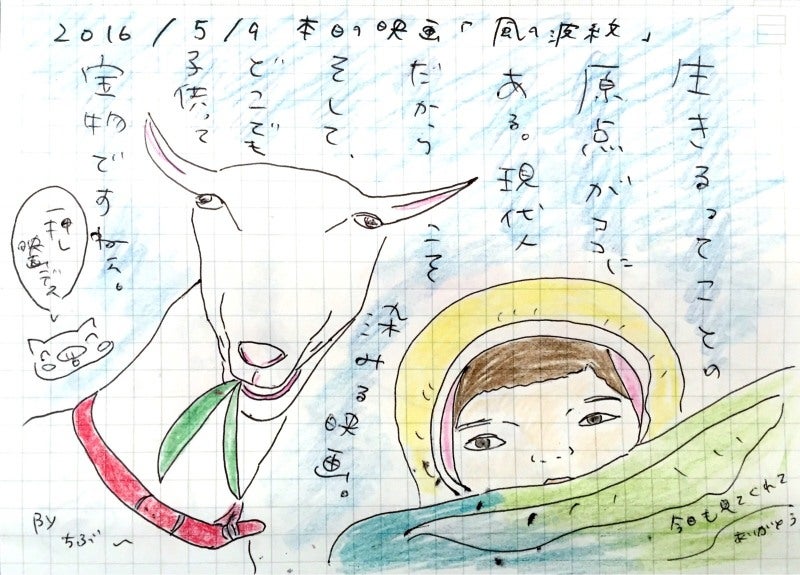 2016/5/9 本日の映画「風の波紋」
生きるってことの
原点がココに
ある。現代人
だからこそ
染みる映画。
そして、
どこでも
子供って
宝物ですねぇ。
一押し
映画デス
BY
ちぶ〜
今日も見てくれて
ありがとう